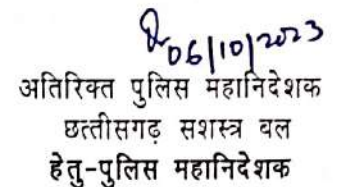 06/10/2023
अतिरिक्त पुलिस महानिदेशक
छत्तीसगढ़ सशस्त्र बल
हेतु-पुलिस महानिदेशक